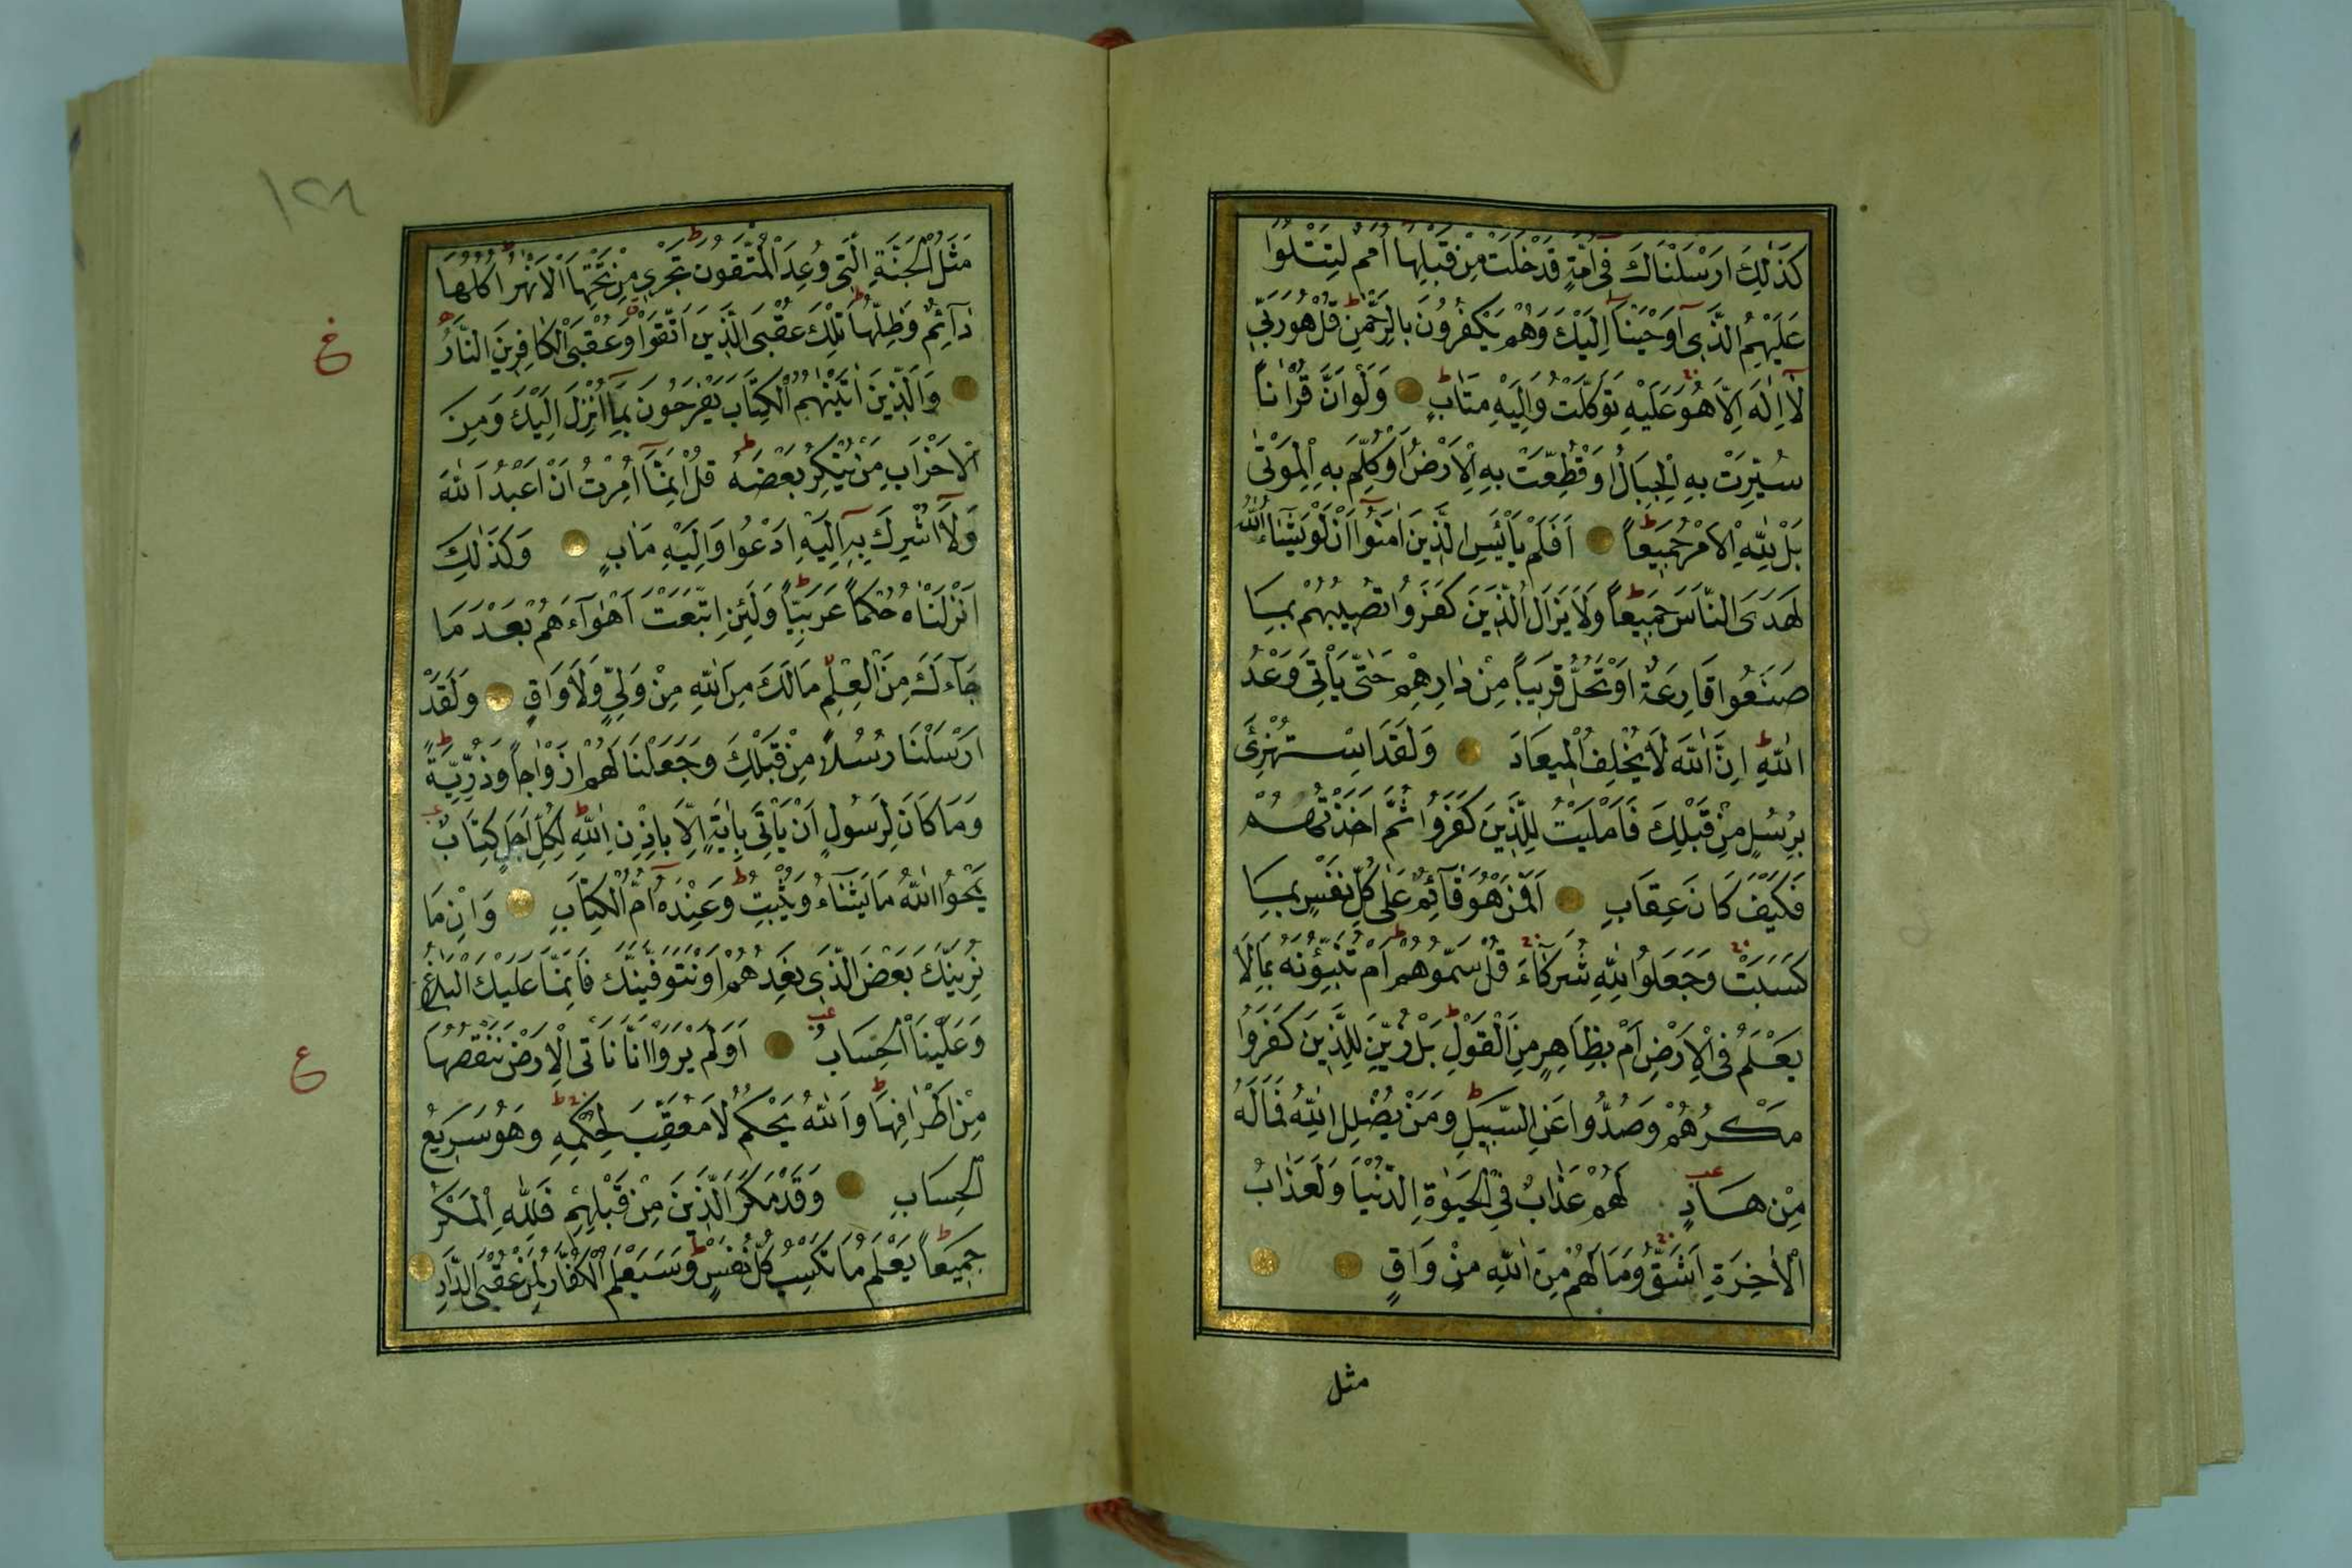 كَذٰلِكَ اَرْسَلْنَاكَ فٖى اُمَّةٍ قَدْ خَلَتْ مِنْ قَبْلِهَا اُمَمٌ لِتَتْلُوَا
عَلَيْهِمُ الَّذٖى اَوْحَيْنَا اِلَيْكَ وَهُمْ يَكْفُرُونَ بِالرَّحْمٰنِ قُلْ هُوَ رَبّٖى
لَا اِلٰهَ اِلَّا هُوَ عَلَيْهِ تَوَكَّلْتُ وَاِلَيْهِ مَتَابِ وَلَوْ اَنَّ قُرْاٰنًا
سُيِّرَتْ بِهِ الْجِبَالُ اَوْ قُطِّعَتْ بِهِ الْاَرْضُ اَوْ كُلِّمَ بِهِ الْمَوْتٰى
بَلْ لِلّٰهِ الْاَمْرُ جَمٖيعًا اَفَلَمْ يَايْئَسِ الَّذٖينَ اٰمَنُوا اَنْ لَوْ يَشَاءُ اللّٰهُ
لَهَدَى النَّاسَ جَمٖيعًا وَلَا يَزَالُ الَّذٖينَ كَفَرُوا تُصٖيبُهُمْ بِمَا
صَنَعُوا قَارِعَةٌ اَوْ تَحُلُّ قَرٖيبًا مِنْ دَارِهِمْ حَتّٰى يَاْتِىَ وَعْدُ
اللّٰهِ اِنَّ اللّٰهَ لَا يُخْلِفُ الْمٖيعَادَ وَلَقَدِ اسْتُهْزِئَ
بِرُسُلٍ مِنْ قَبْلِكَ فَاَمْلَيْتُ لِلَّذٖينَ كَفَرُوا ثُمَّ اَخَذْتُهُمْ
فَكَيْفَ كَانَ عِقَابِ اَفَمَنْ هُوَ قَآئِمٌ عَلٰى كُلِّ نَفْسٍ بِمَا
كَسَبَتْ وَجَعَلُوا لِلّٰهِ شُرَكَآءَ قُلْ سَمُّوهُمْ اَمْ تُنَبِّؤُنَهُ بِمَا لَا
يَعْلَمُ فِى الْاَرْضِ اَمْ بِظَاهِرٍ مِنَ الْقَوْلِ بَلْ زُيِّنَ لِلَّذٖينَ كَفَرُوا
مَكْرُهُمْ وَصُدُّوا عَنِ السَّبٖيلِ وَمَنْ يُضْلِلِ اللّٰهُ فَمَا لَهُ
مِنْ هَادٍ لَهُمْ عَذَابٌ فِى الْحَيٰوةِ الدُّنْيَا وَلَعَذَابُ
الْاٰخِرَةِ اَشَقُّ وَمَا لَهُمْ مِنَ اللّٰهِ مِنْ وَاقٍ
مثل
١٢٨
مَثَلُ الْجَنَّةِ الَّتٖى وُعِدَ الْمُتَّقُونَ تَجْرٖى مِنْ تَحْتِهَا الْاَنْهٰرُ اُكُلُهَا
دَآئِمٌ وَظِلُّهَا تِلْكَ عُقْبَى الَّذٖينَ اتَّقَوْا وَعُقْبَى الْكَافِرٖينَ النَّارُ
خ
وَالَّذٖينَ اٰتَيْنٰهُمُ الْكِتَابَ يَفْرَحُونَ بِمَا اُنْزِلَ اِلَيْكَ وَمِنَ
الْاَحْزَابِ مَنْ يُنْكِرُ بَعْضَهُ قُلْ اِنَّمَا اُمِرْتُ اَنْ اَعْبُدَ اللّٰهَ
وَلَا اُشْرِكَ بِهٖ اِلَيْهِ اَدْعُوا وَاِلَيْهِ مَاٰبِ وَكَذٰلِكَ
اَنْزَلْنَاهُ حُكْمًا عَرَبِيًّا وَلَئِنِ اتَّبَعْتَ اَهْوَآءَهُمْ بَعْدَ مَا
جَآءَكَ مِنَ الْعِلْمِ مَا لَكَ مِنَ اللّٰهِ مِنْ وَلِىٍّ وَلَا وَاقٍ وَلَقَدْ
اَرْسَلْنَا رُسُلًا مِنْ قَبْلِكَ وَجَعَلْنَا لَهُمْ اَزْوَاجًا وَذُرِّيَّةً
وَمَا كَانَ لِرَسُولٍ اَنْ يَاْتِىَ بِاٰيَةٍ اِلَّا بِاِذْنِ اللّٰهِ لِكُلِّ اَجَلٍ كِتَابٌ
يَمْحُوا اللّٰهُ مَا يَشَآءُ وَيُثْبِتُ وَعِنْدَهُ اُمُّ الْكِتَابِ وَاِنْ مَا
نُرِيَنَّكَ بَعْضَ الَّذٖى نَعِدُهُمْ اَوْ نَتَوَفَّيَنَّكَ فَاِنَّمَا عَلَيْكَ الْبَلَاغُ
وَعَلَيْنَا الْحِسَابُ اَوَلَمْ يَرَوْا اَنَّا نَاْتِى الْاَرْضَ نَنْقُصُهَا
ع
مِنْ اَطْرَافِهَا وَاللّٰهُ يَحْكُمُ لَا مُعَقِّبَ لِحُكْمِهِ وَهُوَ سَرٖيعُ
الْحِسَابِ وَقَدْ مَكَرَ الَّذٖينَ مِنْ قَبْلِهِمْ فَلِلّٰهِ الْمَكْرُ
جَمٖيعًا يَعْلَمُ مَا تَكْسِبُ كُلُّ نَفْسٍ وَسَيَعْلَمُ الْكُفَّارُ لِمَنْ عُقْبَى الدَّارِ